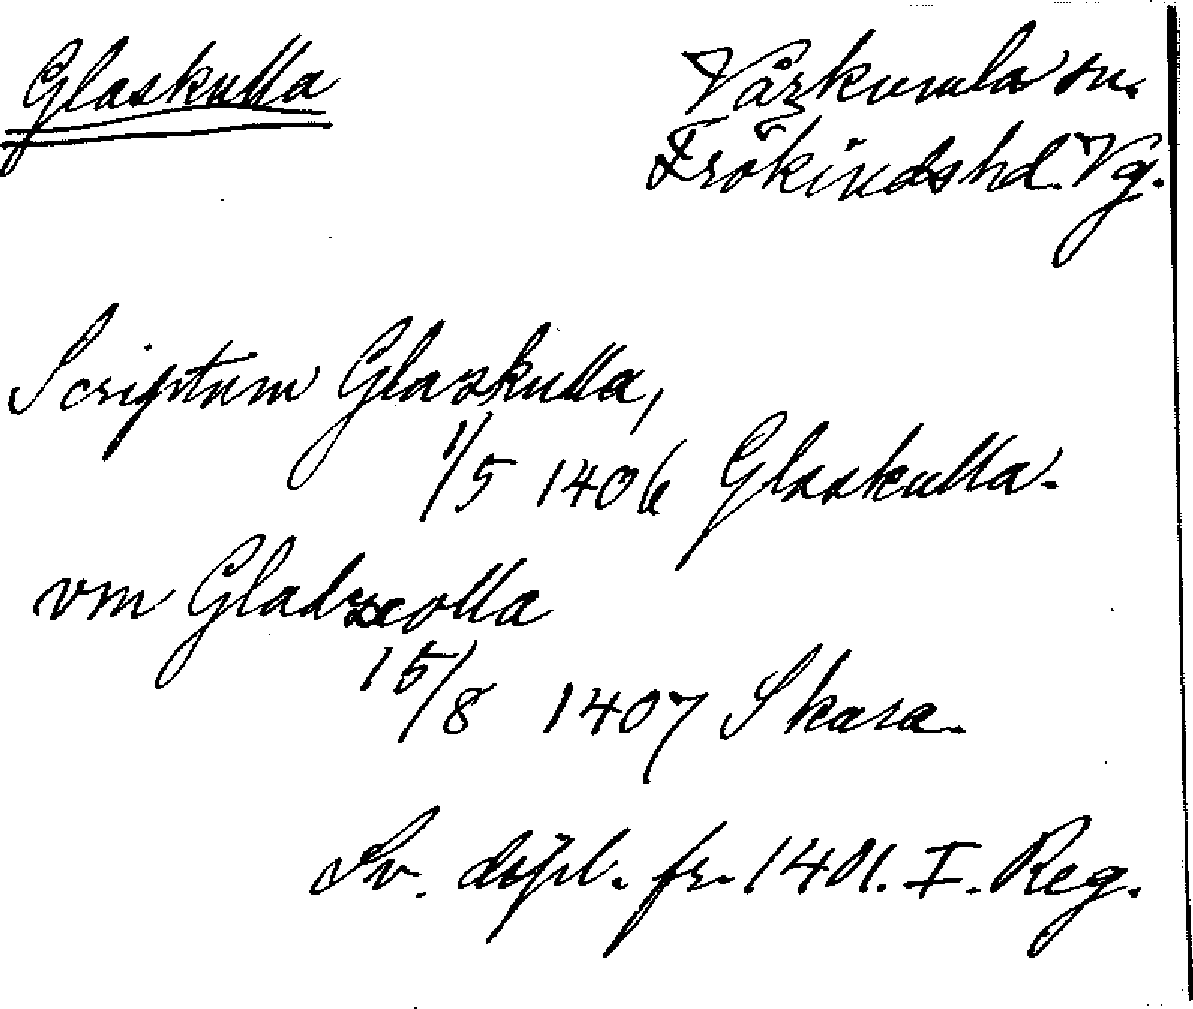 Glaskulla
Vårkumla sn.
Frökindshd. Vg.
Scriptum Glaskulla,
1/5 1406 Glaskulla.
vm Gladzcolla
15/8 1407 Skara.
Sv. dipl. fr. 1401. I. Reg.